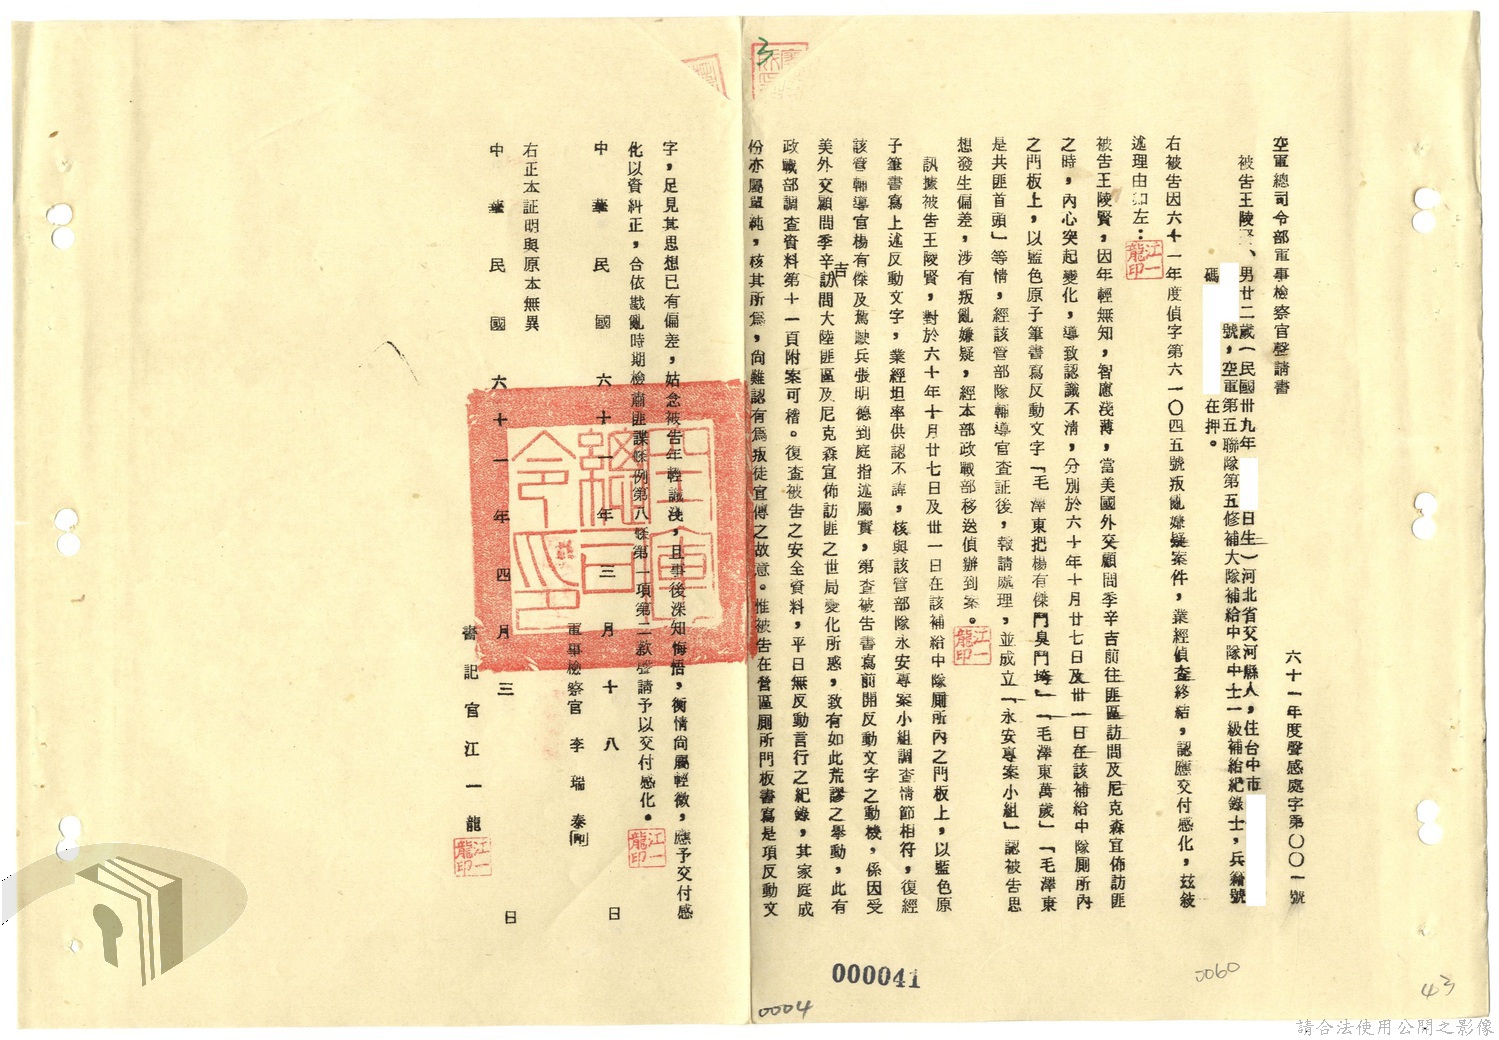 空軍總司令部軍事檢察官聲請書
六十一年度聲感處字第〇〇一號
被告王陵賢、男廿二歲（民國卅九年 日生）河北省交河縣人，住台中市
號，空軍第五聯隊第五修補大隊補給中隊中士一級補給紀錄士，兵籍號
碼 在押。
右被告因六十一年度偵字第六一〇四五號叛亂嫌疑案件，業經偵查終結，認應交付感化，茲敘
述理由如左：
江一龍印
被告王陵賢，因年輕無知，智慮淺薄，當美國外交顧問季辛吉前往匪區訪問及尼克森宣佈訪匪
之時，內心突起變化，導致認識不清，分別於六十年十月廿七日及卅一日在該補給中隊厠所內
之門板上，以藍色原子筆書寫反動文字「毛澤東把楊有傑鬥臭鬥垮」「毛澤東萬歲」「毛澤東
是共匪首頭」等情，經該管部隊輔導官查証後，報請處理，並成立「永安專案小組」認被告思
想發生偏差，涉有叛亂嫌疑，經本部政戰部移送偵辦到案。
江一龍印
訊據被告王陵賢，對於六十年十月廿七日及卅一日在該補給中隊厠所內之門板上，以藍色原
子筆書寫上述反動文字，業經坦率供認不諱，核與該管部隊永安專案小組調查情節相符，復經
該管輔導官楊有傑及駕駛兵張明德到庭指述屬實，第查被告書寫前開反動文字之動機，係因受
美外交顧問季辛吉訪問大陸匪區及尼克森宣佈訪匪之世局變化所惑，致有如此荒謬之舉動，此有
政戰部調查資料第十一頁附案可稽。復查被告之安全資料，平日無反動言行之紀錄，其家庭成
份亦屬單純，核其所爲，尚難認有爲叛徒宣傳之故意。惟被告在營區厠所門板書寫是項反動文
字，足見其思想已有偏差，姑念被告年輕識淺，且事後深知悔悟，衡情尚屬輕微，應予交付感
化以資糾正，合依戡亂時期檢肅匪諜條例第八條第一項第二款聲請予以交付感化。
江一龍印
中華民國六十一年三月十八日
軍事檢察官 李瑞泰
右正本証明與原本無異
中華民國六十一年四月三日
書記官江一龍
江一龍印
空軍總司令印
3
000041
0004
0060
43
請合法使用公開之影像